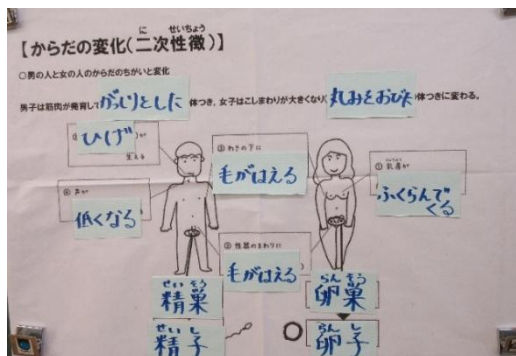 【からだの変化(二次性徴)】
に せいちょう
○男の人と女の人のからだのちがいと変化
男子は筋肉が発育して がっしりとした 体つき、女子はこしまわりが大きくなり 丸みをおびた 体つきに変わる。
ひげ が
生える
③ わきの下に
毛がはえる
① 乳房が
ふくらんで
くる
④ 声が
低くなる
② 性器のまわりに
毛がはえる
せい そう
精巣
らん そう
卵巣
せい し
精子
らん し
卵子